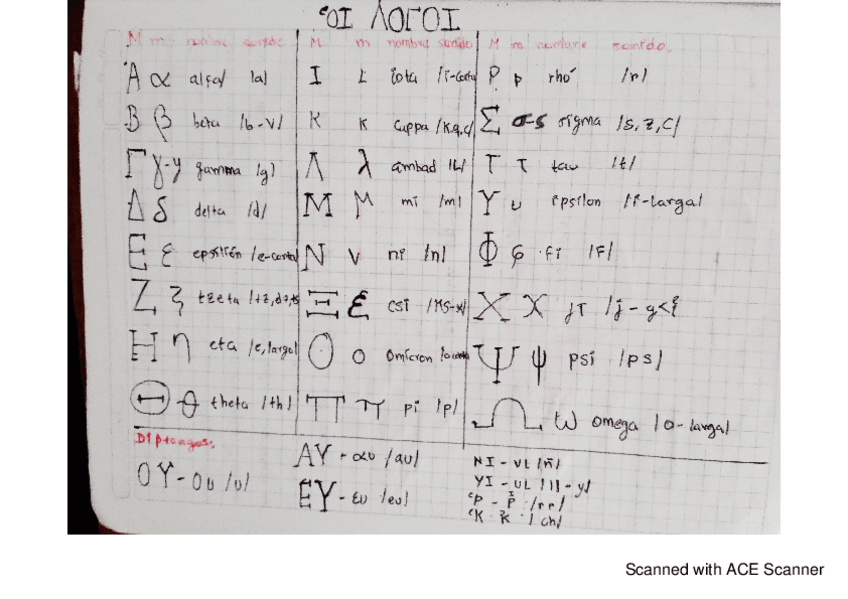 ʽOI ΛΟΓΟΙ
M m nombre sonido M m nombre sonido M m nombre sonido
Ἀ α alfa /a/ I ι iota /i-corta P ρ rhó /r/
B β beta /b-v/ K κ cappa /K,q,c/ Σ σ-ς sigma /s,z,c/
Γ γ-y gamma /g/ Λ λ ambad /L/ T τ tau /t/
Δ δ delta /d/ M μ mi /m/ Y υ ipsilon /i-larga/
E ε epsilón /e-corta/ N ν ni /n/ Φ φ fi /F/
Z ζ tzeta /tz,dz,ts Ξ ξ csi /Ks-x/ X χ ji /j-g<
H η eta /e,larga/ O ο omicron /o corta Ψ ψ psi /ps/
Θ θ theta /th/ Π π pi /p/ Ω ω omega /o-larga/
Diptongos:
OY-ου /u/ AY-αυ /au/ NI-νι /ñ/
EY-ευ /eu/ YI-υι /ll-y/
ʽP-ῥ /rr/
ʽK-κ /ch/
Scanned with ACE Scanner